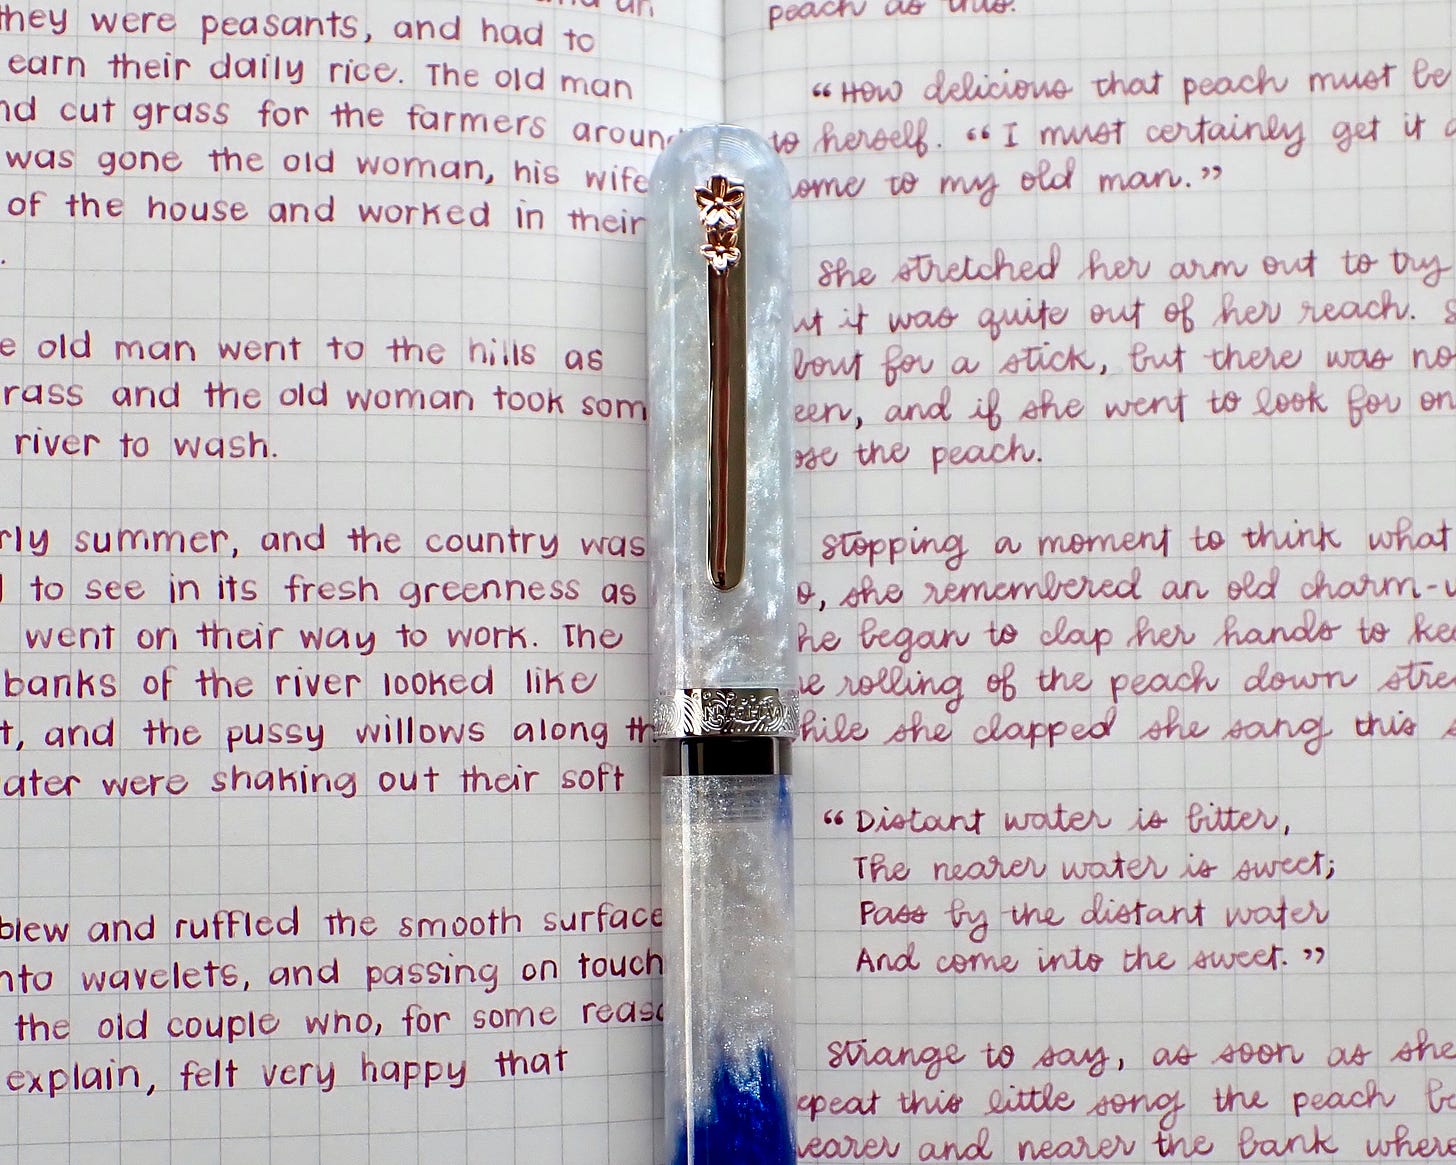 they were peasants, and had to
earn their daily rice. The old man
nd cut grass for the farmers around
was gone the old woman, his wife
of the house and worked in their
.
e old man went to the hills as
rass and the old woman took som
river to wash.
rly summer, and the country was
to see in its fresh greenness as
went on their way to work. The
banks of the river looked like
t, and the pussy willows along th
ater were shaking out their soft
blew and ruffled the smooth surface
nto wavelets, and passing on touch
the old couple who, for some reaso
explain, felt very happy that
peach as this.
“How delicious that peach must be
to herself. “I must certainly get it
ome to my old man.”
She stretched her arm out to try
ut it was quite out of her reach. S
bout for a stick, but there was no
een, and if she went to look for on
ose the peach.
Stopping a moment to think what
o, she remembered an old charm-
he began to clap her hands to ke
he rolling of the peach down stre
hile she clapped she sang this s
“Distant water is bitter,
The nearer water is sweet;
Pass by the distant water
And come into the sweet.”
Strange to say, as soon as she
epeat this little song the peach be
earer and nearer the bank where